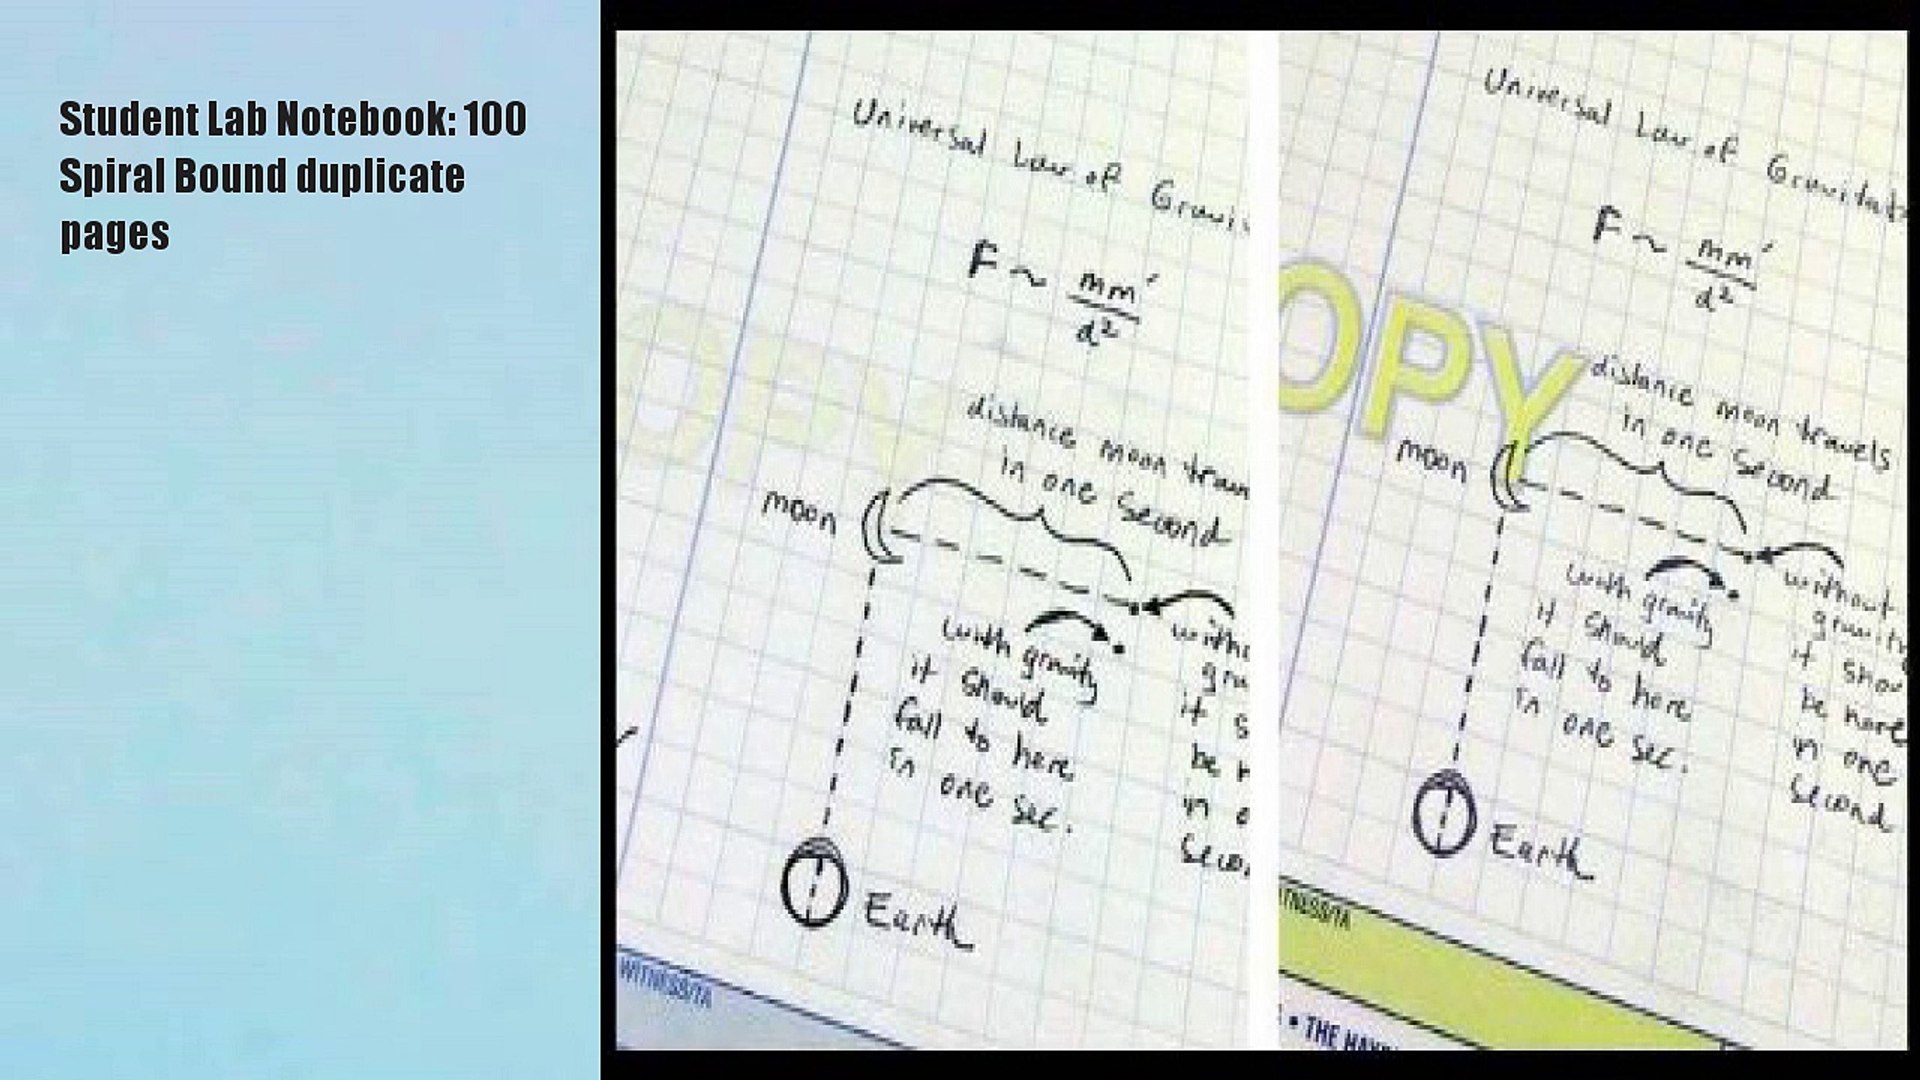 Student Lab Notebook: 100
Spiral Bound duplicate
pages
Universal Law of Gravi
F ~ mm′
d²
distance moon trav
in one second
moon
with gravity
it should
fall to here
in one sec.
witho
gra
it s
be h
in o
Secon
Earth
WITNESS/TA
Universal Law of Gravitat
F ~ mm′
d²
OPY
distance moon travels
in one second
moon
with gravity
it should
fall to here
in one sec.
without
gravity
it shou
be here
in one
second
Earth
ITNESS/TA
• THE HAY